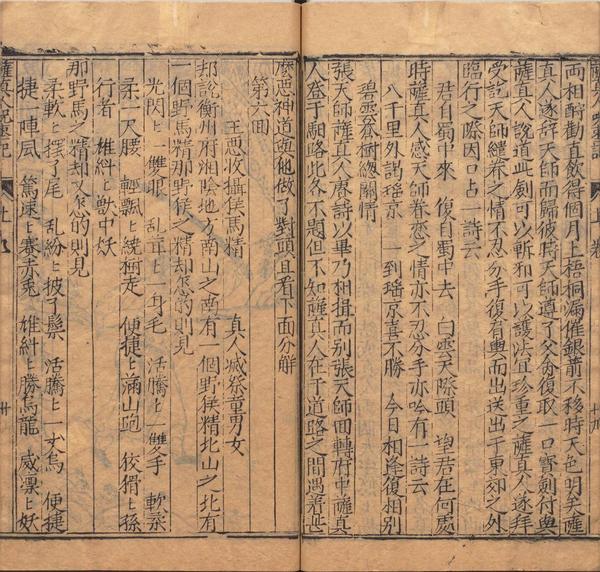 兩相酧勸直飲得個月上梧桐漏催銀箭不移時天色明矣薩
真人遂辭天師而歸彼時天師遵了父命復取一口寳劍付與
薩真人說道此劍可以斬邪可以護法宜珍重之薩真人遂拜
受訖天師繾綣之情不忍分手復有輿而出送出于東郊之外
臨行之際因口占一詩云
君自蜀中來 復自蜀中去 白雲天際頭 望君在何處
時薩真人感天師眷戀之情亦不忍分手亦吟有一詩云
八千里外謁瑤京 一到瑤京喜不勝 今日相逢復相別
碧雲春樹總關情
張天師薩真人賡詩以畢乃相揖而別張天師回轉府中薩真
人登于駟路此各不題但不知薩真人在于道路之間遇着甚
麽惡神道與他做了對頭且看下面分解
第六回
王惡收攝猴馬精 真人滅祭童男女
却說衡州府湘陰地方南山之南有一個野猴精北山之北有
一個野馬精那野猴之精却怎的則見
光閃〻一雙眼 乱茸〻一身毛 活騰〻一雙手 軟柔
柔一尺腰 輕飄〻繞樹走 便捷〻滿山跑 狡猾〻孫
行者 雄糾〻獸中妖
那野馬之精却又怎的則見
柔軟〻擺了尾 乱紛〻披了鬃 活騰〻一步 便捷
捷一陣風 篤速〻賽赤兔 雄糾〻勝烏龍 威凛〻妖
薩真人咒棗記 上 廿